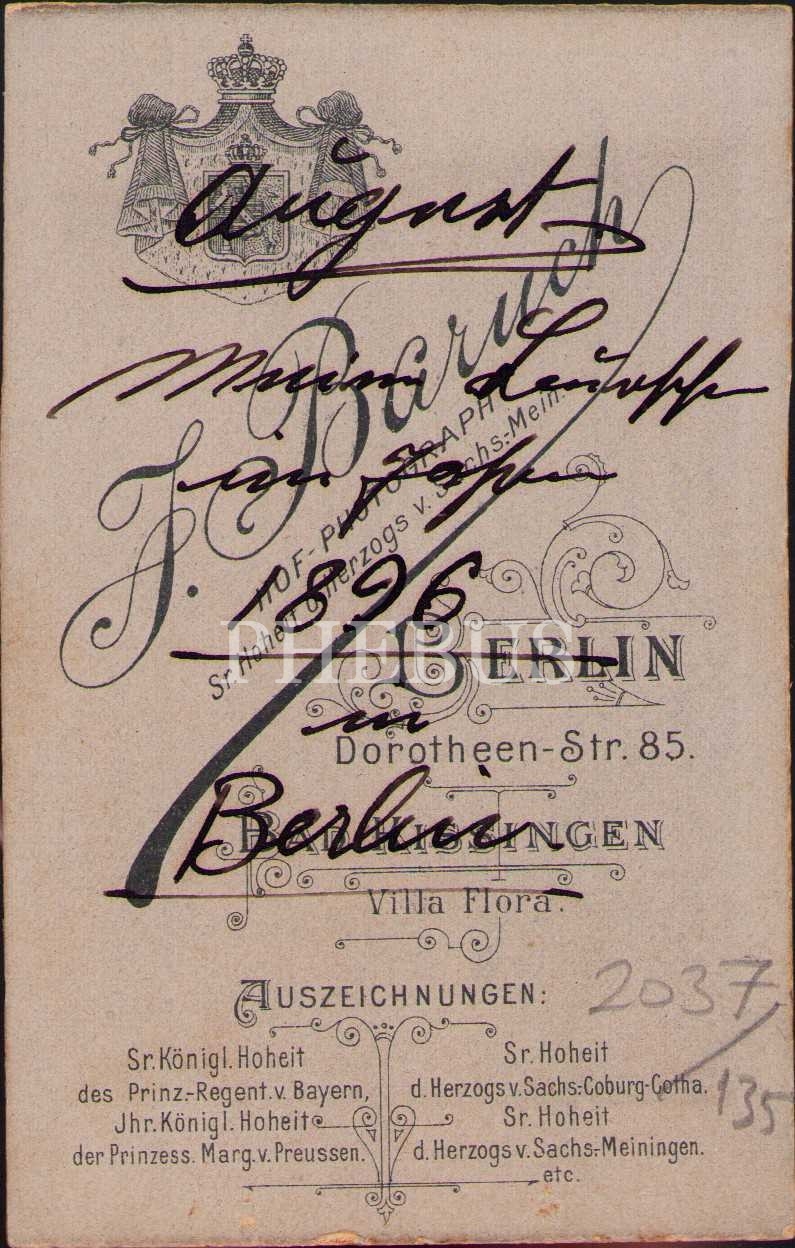 August
J. Baruch
HOF-PHOTOGRAPH
Sr. Hoheit d. Herzogs v. Sachs:-Mein.
im
1896
PHEBUS
BERLIN
in
Dorotheen-Str. 85.
Berlin
BAD KISSINGEN
Villa Flora.
AUSZEICHNUNGEN:
2037
135
Sr. Königl. Hoheit
des Prinz-Regent. v. Bayern,
Jhr. Königl. Hoheit
der Prinzess. Marg. v. Preussen.
Sr. Hoheit
d. Herzogs v. Sachs:-Coburg-Gotha.
Sr. Hoheit
d. Herzogs v. Sachs:-Meiningen.
etc.